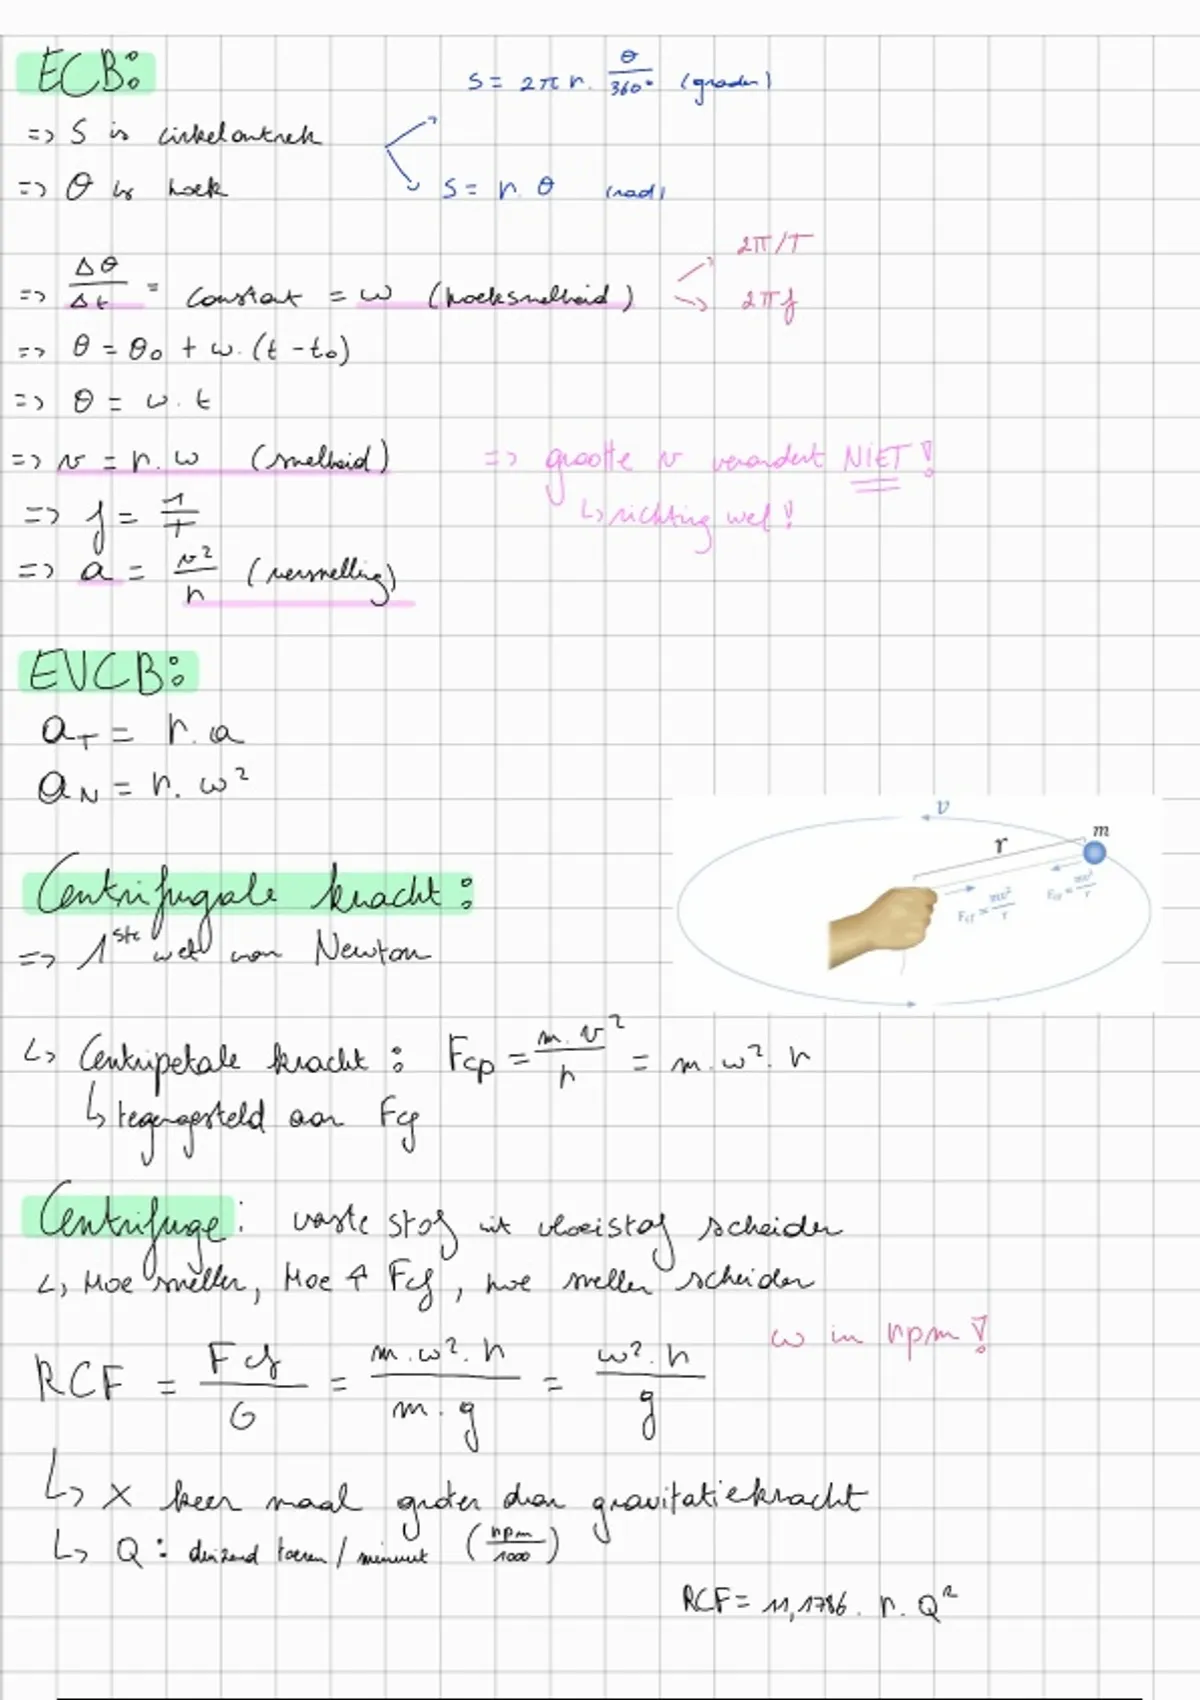 ECB:
s = 2πr. θ/360° (graden)
=> S is cirkelomtrek
=> θ is hoek
s = r. θ (rad)
2π/T
=> Δθ/Δt = constant = ω (hoeksnelheid)
2πf
=> θ = θ₀ + ω.(t - t₀)
=> θ = ω.t
=> v = r.ω (snelheid) => grootte v verandert NIET!
=> f = 1/T ↳ richting wel!
=> a = v²/r (versnelling)
EVCB:
a_T = r.a
a_N = r.ω²
v
r m
Centrifugale kracht:
=> 1ste wet van Newton
↳ Centripetale kracht: Fcp = m.v²/r = m.ω².r
↳ tegengesteld aan Fcf
Centrifuge: vaste stof uit vloeistof scheiden
↳ Hoe sneller, Hoe ↑ Fcf, hoe sneller scheiden
ω in rpm!
RCF = Fcf/G = m.ω².r/m.g = ω².r/g
↳ X keer maal groter dan gravitatiekracht
↳ Q: duizend toeren/minuut (rpm/1000)
RCF = 11,1786. r. Q²